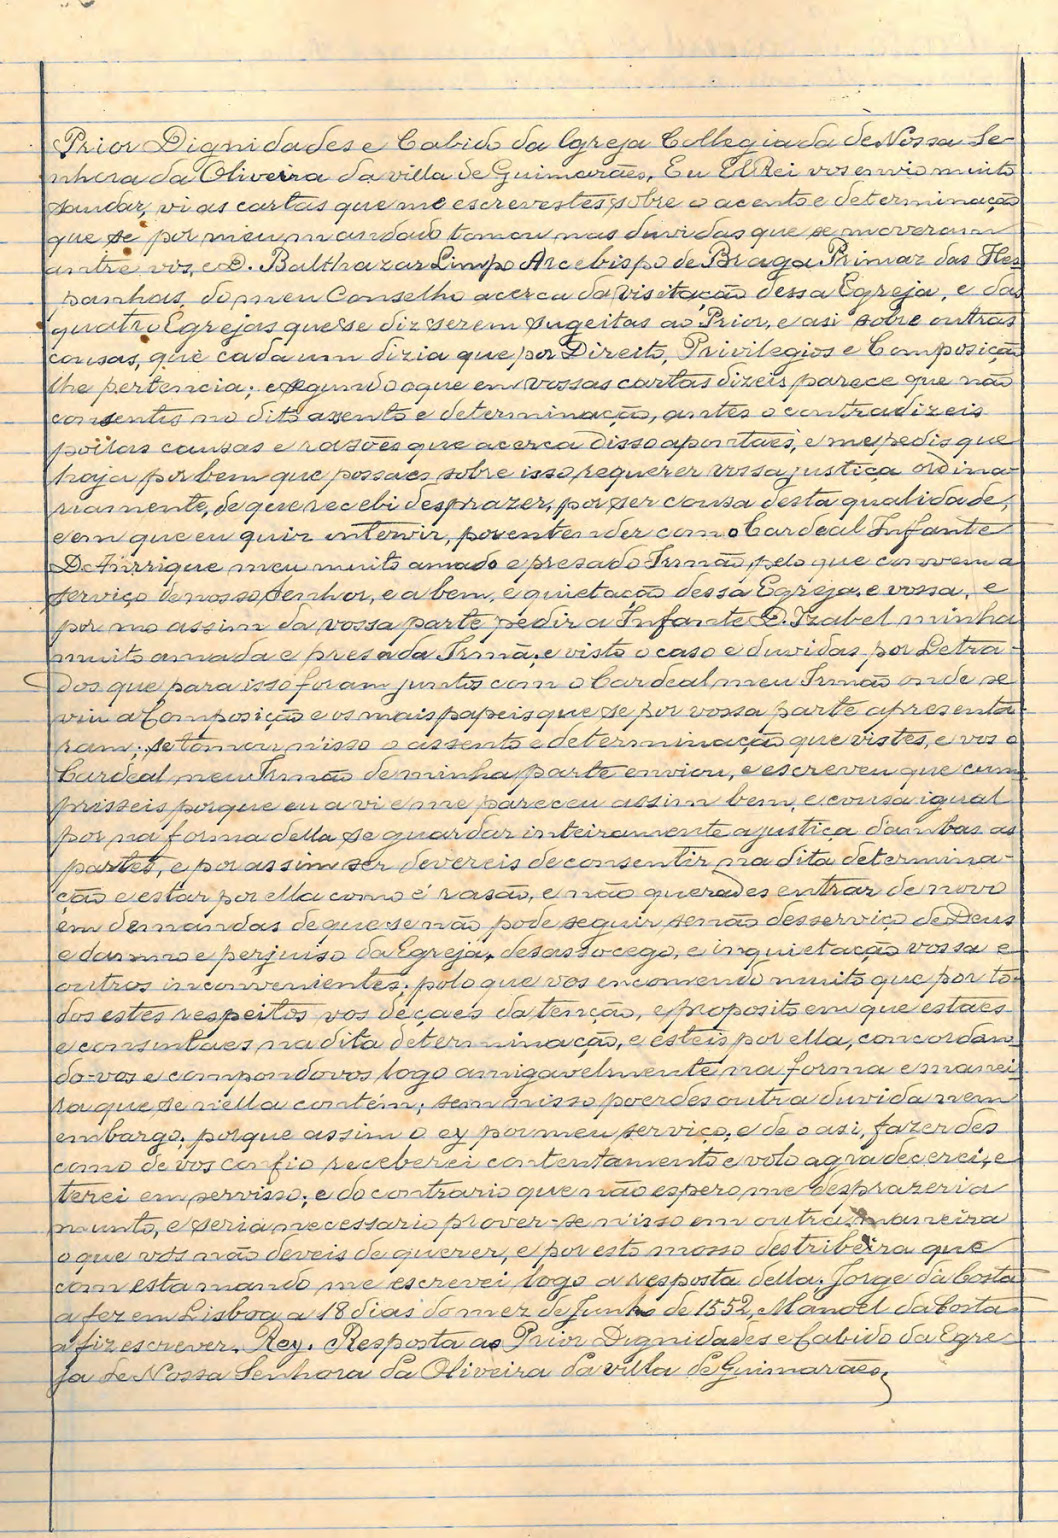 Prior Dignidades e Cabido da Igreja Collegiada de Nossa Se-
nhora da Oliveira da villa de Guimarães, Eu El Rei vos envio muito
saudar, vi as cartas que me escrevestes sobre o acento e determinação
que se por meu mandado tomou nas duvidas que se moveram
antre vos, e D. Balthazar Limpo Arcebispo de Braga Primaz das Hes-
panhas, do meu Conselho acerca da visitação dessa Egreja, e das
quatro Egrejas que se diz serem sugeitas ao Prior, e asi sobre outras
cousas, que cada um dizia que por Direito, Privilegios e Composição
lhe pertencia; e segundo o que em vossas cartas dizeis parece que não
consentis no dito assento e determinação, antes o contradizeis
poilas causas e rasões que acerca disso apontaes, e me pedis que
haja por bem que possaes sobre isso requerer vossa justiça ordina-
riamente, de que recebi desprazer, por ser cousa desta qualidade,
e em que eu quir intervir, por entender com o Cardeal Infante
D. Henrique meu muito amado e presado Irmão, pelo que convem a
serviço de nosso Senhor, e a bem, e quietação dessa Egreja, e vossa, e
por mo assim da vossa parte pedir a Infante D. Izabel minha
muito amada e presada Irmã, e visto o caso e duvidas por Letra-
dos que para isso foram juntos com o Cardeal meu Irmão onde se
viu a Composição e os mais papeis que se por vossa parte apresenta-
ram; se tomou n'isso o assento e determinação que vistes, e vos o
Cardeal meu Irmão de minha parte enviou, e escreveu que cum-
prisseis porque eu a vi e me pareceu assim bem, e cousa igual
por na forma della se guardar inteiramente a justiça d'ambas as
partes, e por assim ser devereis de consentir na dita determina-
ção e estar por ella como é rasão, e não querades entrar de novo
em demandas de que se não pode seguir senão desserviço de Deus
e damno e perjuiso da Egreja, desassocego, e inquietação vossa e
outros inconvenientes; polo que vos encomendo muito que por to-
dos estes respeitos vos deçaes da tenção, e proposito em que estaes
e consintaes na dita determinação, e esteis por ella, concordan-
do-vos e compondovos logo amigavelmente na forma e manei-
ra que se n'ella contém; sem nisso poerdes outra duvida nem
embargo, porque assim o ey por meu serviço, e de o asi, fazerdes
como de vos confio receberei contentamento e volo agradecerei, e
terei em servisso; e do contrario que não espero me desprazeria
muito, e seria necessario prover-se n'isso em outra maneira
o que vós não deveis de querer, e por este mosso destribeira que
com esta mando me escrevei logo a resposta della. Jorge da Costa
a fez em Lisboa a 18 dias do mez de Junho de 1552, Manoel da Costa
a fiz escrever. Rey. Resposta ao Prior Dignidades e Cabido da Egre-
ja de Nossa Senhora da Oliveira da villa de Guimarães,